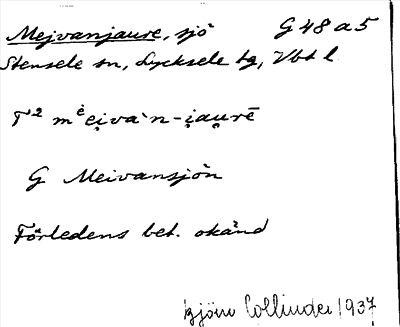 Mejvanjaure, sjö G 48 a 5
Stensele sn, Lycksele tg, Vbt l.
T² mᵉ̀ei̯va`n-i̯au̯rē
G Meivansjön
Förledens bet. okänd
Björn Collinder 1937